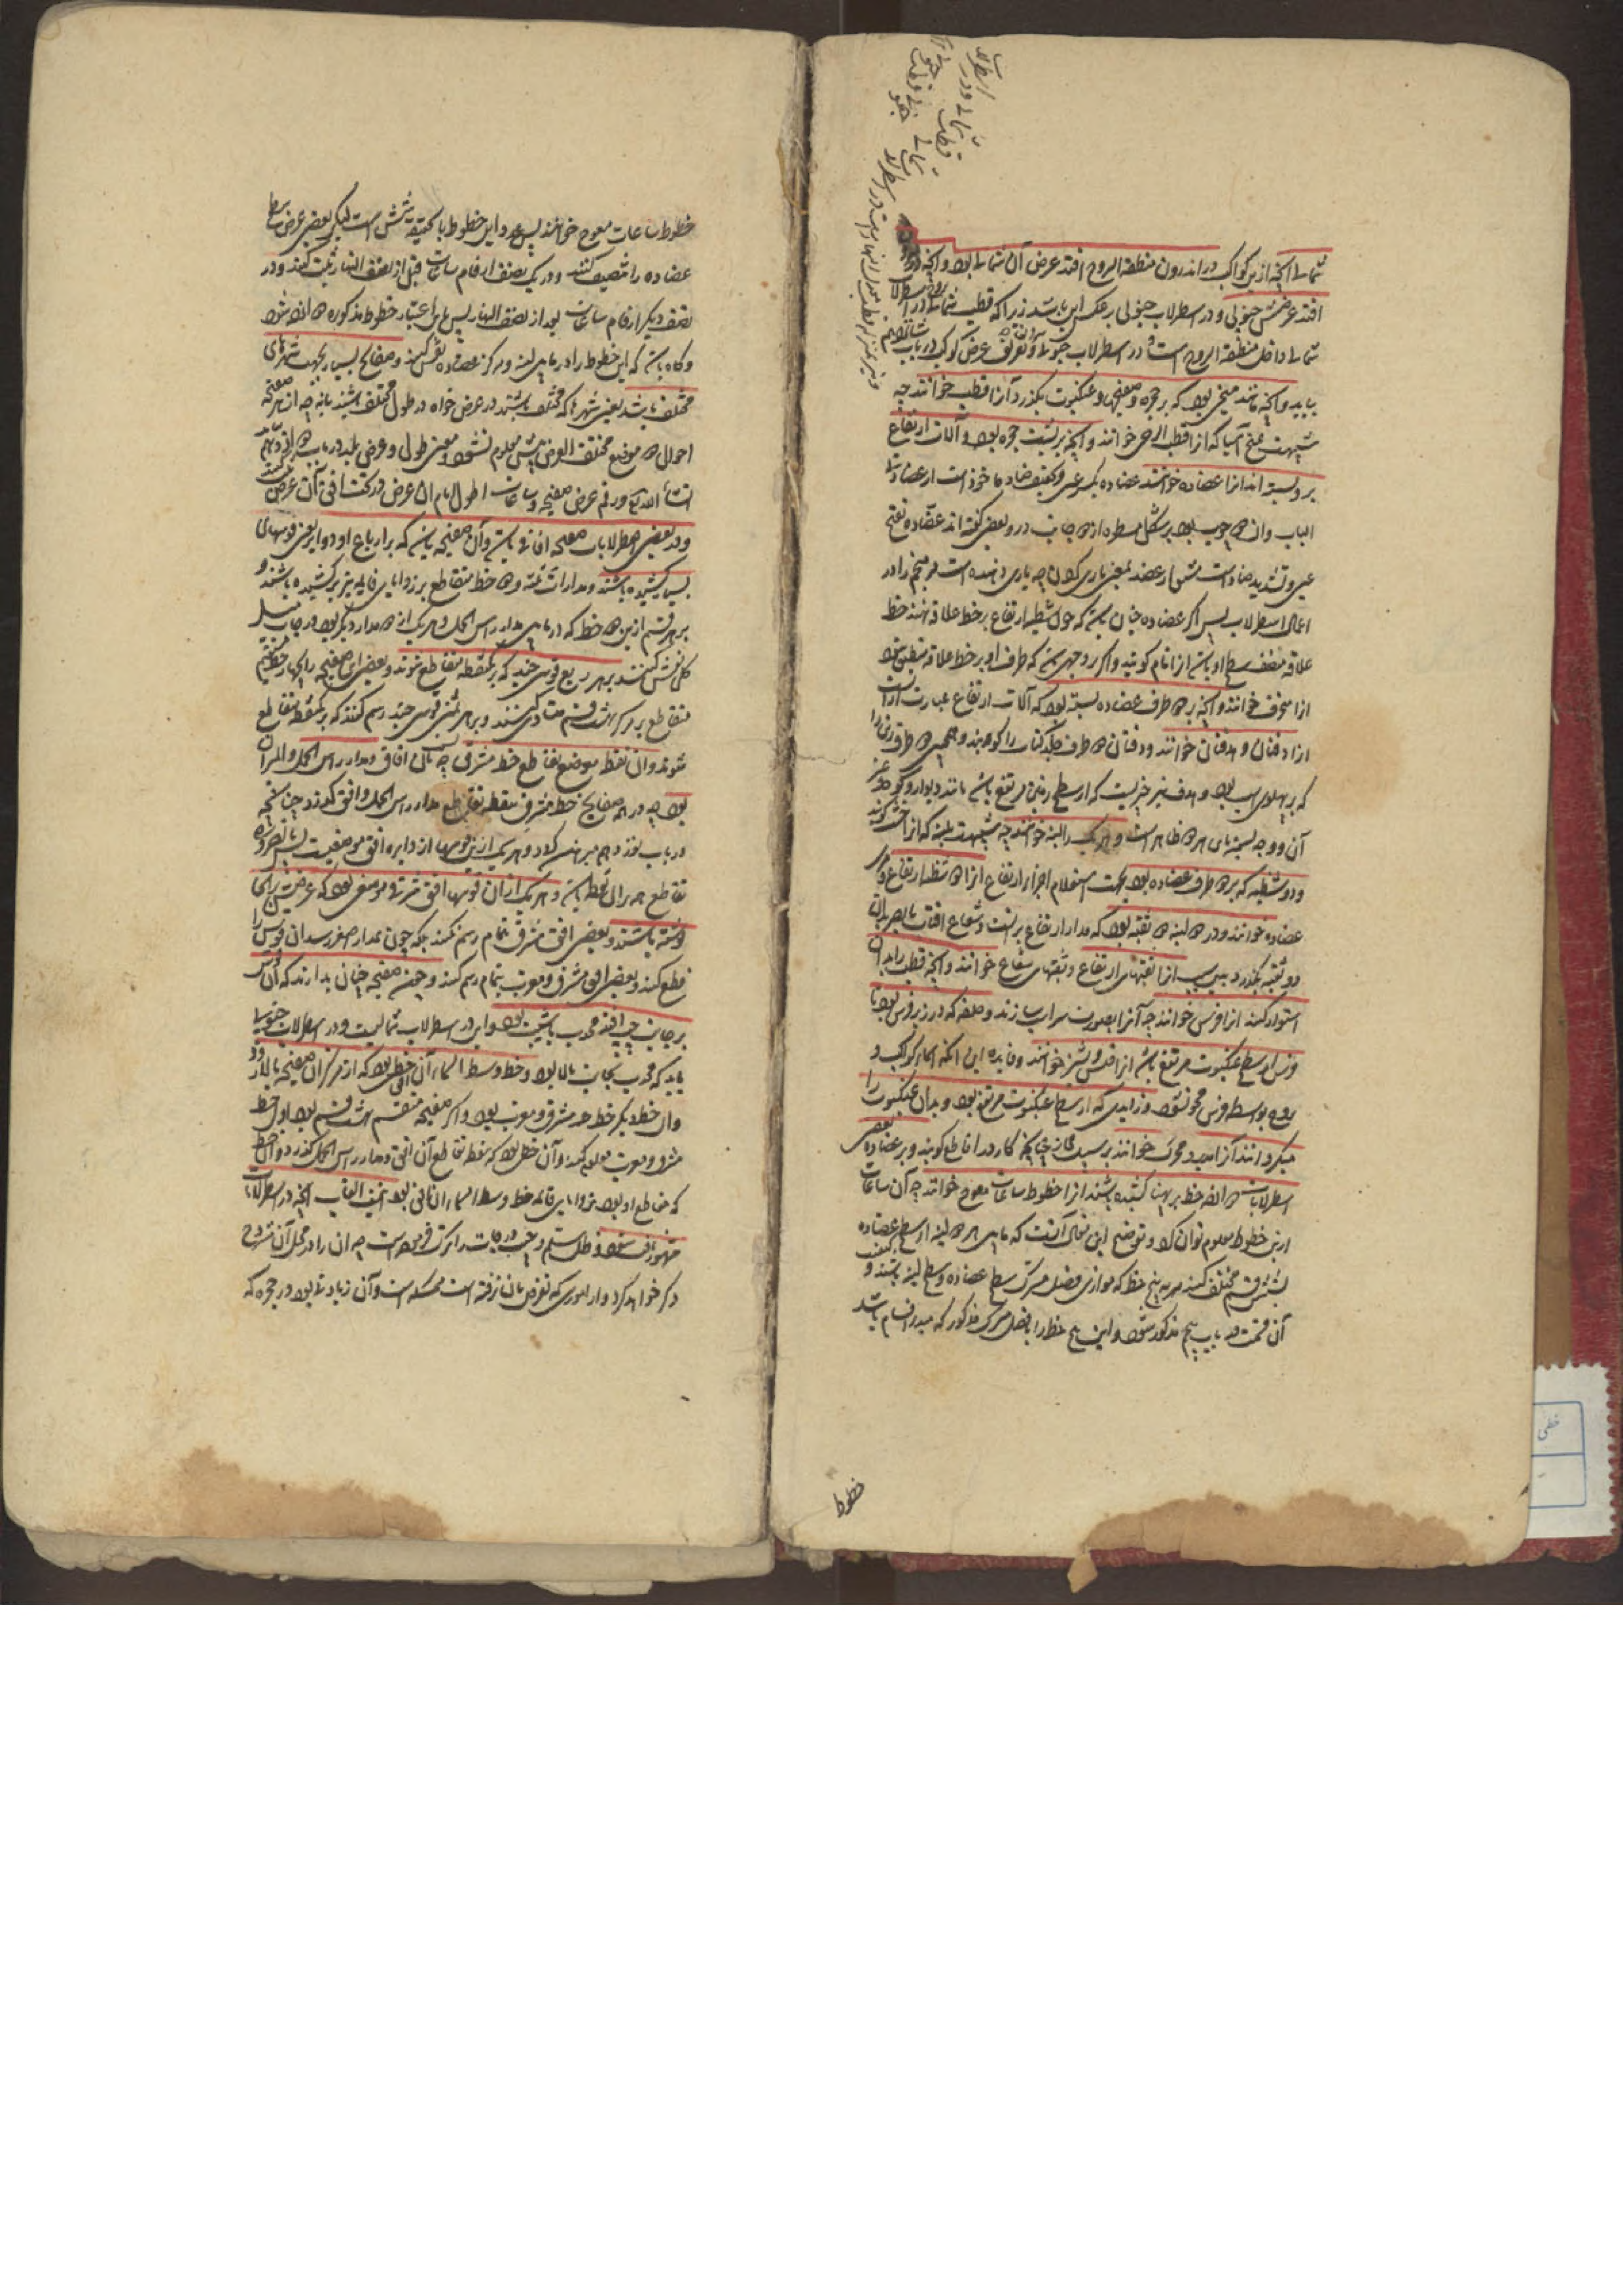 شمالی آنچه ازین کواکب در اندرون منطقة البروج افتد عرض آن شمالی بود و آنچه در
افتد عرضش جنوبی و در اسطرلاب جنوبی بر عکس این باشد زیرا که قطب شمالی در اسطرلاب
شمالی داخل منطقة البروج است و در اسطرلاب جنوبی و تعریف عرض کوکب در باب
بیاید و آنچه مانند میخی بود که بر حجره و صفیحها و عنکبوت بگذرد آنرا قطب خوانند چه
شبیهست بمیخ آسیا که آنرا قطب الرحی خوانند و آنچه بر پشت حجره بود و آلات ارتفاع
برو بسته اند آنرا عضاده خوانند عضاده بکسر عین و تخفیف ضاد ماخوذ است از عضادتی
الباب و آن دو چوب بود بر شکل مسطره از دو جانب در و بعضی گفته اند عضاده بفتح
عین و تشدید ضاد است مشتق از عضد بمعنی یاری کردن چه یاری دهنده است مر منجم را در
اعمال اسطرلاب پس اگر عضاده چنان باشد که چون شظیه ارتفاع بر خط علاقه نهند خط
علاقه منصف سطح او باشد آنرا تام گویند و اگر بر وجهی باشد که طرف او بر خط علاقه منطبق شود
آنرا محرف خوانند و آنچه بر دو طرف عضاده بسته بود که آلات ارتفاع عبارت از آنست
آنرا دفتان و هدفتان خوانند و دفتان دو طرف جلد کتاب را گویند و همچنین دو طرف زین را
که بر پهلوی اسب بود و هدف نیز چیزیست که از سطح زمین مرتفع باشد مانند دیوار و کوه و غیر
آن و وجه تسمیه باین هر دو ظاهر است و هر یک را لبنه خوانند چه شبیهست بلبنه که آنرا خشت گویند
و دو شظیه که بر دو طرف عضاده بود بجهت استعلام اجزاء ارتفاع آنرا دو شظیه ارتفاع و مری
عضاده خوانند و در دو لبنه دو ثقبه بود که مدار ارتفاع بر آنست و شعاع آفتاب یا بصر از آن
دو ثقبه بگذرد بدین سبب آنرا ثقبتهای ارتفاع و ثقبتهای شعاع خوانند و آنچه قطب را بدان
استوار کنند آنرا فرس خوانند چه آنرا بصورت سر اسب سازند و حلقه که در زیر فرس بود تا
فرس از سطح عنکبوت مرتفع باشد آنرا فلس و پشیز خوانند و فایده این آنکه اسماء کواکب و
بروج بواسطه فرس محو نشود و زایدی که از سطح عنکبوت مرتفع بود و بدان عنکبوت را
میگردانند آنرا مدیر و محرک خوانند بر سبیل مجاز چنانکه کارد را قاطع گویند و بر عضاده بعضی
اسطرلابات دوازده خط بر پهنا کشیده باشند آنرا خطوط ساعات معوج خوانند چه آن ساعات
ازین خطوط معلوم توان کرد و توضیح این مقال آنست که مابین هر دو لبنه از سطح عضاده
بشش قسم مختلف کنند هر یه پنج خط که موازی فصل مشترک سطح عضاده و سطح لبنه باشند و
آن قسمت در باب پنجم مذکور شود و این پنج خط را با فصل مشترک مذکور که مبدأ اقسام باشد
خطوط
خطوط ساعات معوج خوانند پس عدد این خطوط بالحقیقه شش است لیکن بعضی عرض سطح
عضاده را تنصیف کنند و در یک نصف ارقام ساعات قبل از نصف النهار ثبت کنند و در
نصف دیگر ارقام ساعات بعد از نصف النهار پس باین اعتبار خطوط مذکوره دوازده شود
و گاه باشد که این خطوط را در مابین لبنه و مرکز عضاده نقش کنند و صفایح بسیار بجهت شهرهای
مختلف باشد یعنی شهرها که مختلف باشند در عرض خواه در طول مختلف باشند یا نه چه از هر صفیحه
احوال دو موضع مختلف العرض بیش معلوم نشود و معنی طول و عرض بلد در باب دوازدهم بیاید
انشاء الله تعالی و رقم عرض صفیحه و ساعات اطول ایام آن عرض در تحت افق آن عرض کنند
و در بعضی اسطرلابات صفیحه آفاقی باشد و آن صفیحه باشد که بر ارباع او دوایر یعنی قوسهای
بسیار کشیده باشند و مدارات ثلثه و دو خط متقاطع بر زوایای قایمه نیز بر کشیده باشند و
بر هر قسم ازین دو خط که در مابین مدار راس الحمل و هر یک از دو مدار دیگر بود در جانب میل
کلی نقش کنند بر هر ربع قوسی چند که بر یکنقطه متقاطع شوند و بعضی این صفیحه را بچهار خط مستقیم
متقاطع بر مرکز بهشت قسم متساوی کنند و بر هر ثمنی قوسی چند رسم کنند که بر یکنقطه متقاطع
شوند و آن نقطه موضع تقاطع خط مشرق باشد چه آن آفاق و مدار راس الحمل و المیزان
بود چه در همه صفایح خط مشرق بنقطه تقاطع مدار راس الحمل و افق گذرد چنانچه
در باب نوزدهم مبرهن گردد و هر یک ازین قوسها از دایره افق موضعیست پس بالضروره
تقاطع همه بر آن نقطه باشد و هر یک از آن قوسها افق مشرقی موضعی بود که عرضش بر آنجا
نوشته باشند و بعضی افق مشرق بتمام رسم نکنند بلکه چون بمدار اصغر رسد آن قوس را
قطع کنند و بعضی افق مشرق و مغرب بتمام رسم کنند و چون صفیحه چنان بدارند که آن قوس
بر جانب چپ افتد محدب باشیب بود و این در اسطرلاب شمالیست و در اسطرلاب جنوبی
باید که محدب بجانب بالا بود و خط وسط السماء آن افق خطی بود که از مرکز آن صفیحه ببالا رود
و آن خط دیگر خط مشرق و مغرب بود و اگر صفیحه منقسم بهشت قسم بود اول خط
مشرق و مغرب معلوم کنند و آن خطی بود که بنقطه تقاطع آن افق و مدار راس الحمل گذرد و آن خط
که مقاطع او بود بزوایای قائمه خط وسط السماء آن افق بود اینست القاب آنچه در اسطرلابات
مشهور یافت شود و ظل سلم و جیب و درجات را بترک فرموده است چه آن را در محل آن مشروح
ذکر خواهد کرد و از اموری که تعرض بآن نرفته است ممسکه است و آن زیادتی بود در حجره که